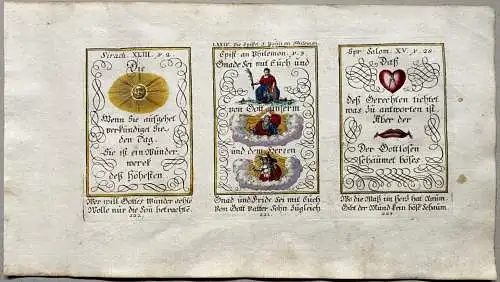 Sirach. XLIII. v. 2.
Die
Wenn Sie aufgehet
verkündiget Sie
den Tag.
Sie ist ein Wunder
werck
deß Höhesten
Wer will Gottes Wunder
Wolle nur die Son betrachte.
221.
LXXIV. Die Epistel S. Pauli an Philemon.
Epist. an Philemon. v. 3.
Gnade Sei mit Euch und
von Gott unserm
und dem Herren
Gnad und Fride Sei mit Euch
Von Gott Vatter Sohn Zugleich
222.
Spr. Salom. XV. v. 28.
Daß
deß Gerechten tichtet
was Zu antworten ist.
Aber der
Der Gottlosen
schäumet böses
Wo die Maß im Herz hat Raum
Gibt der Mund kein böß Schaum
223.